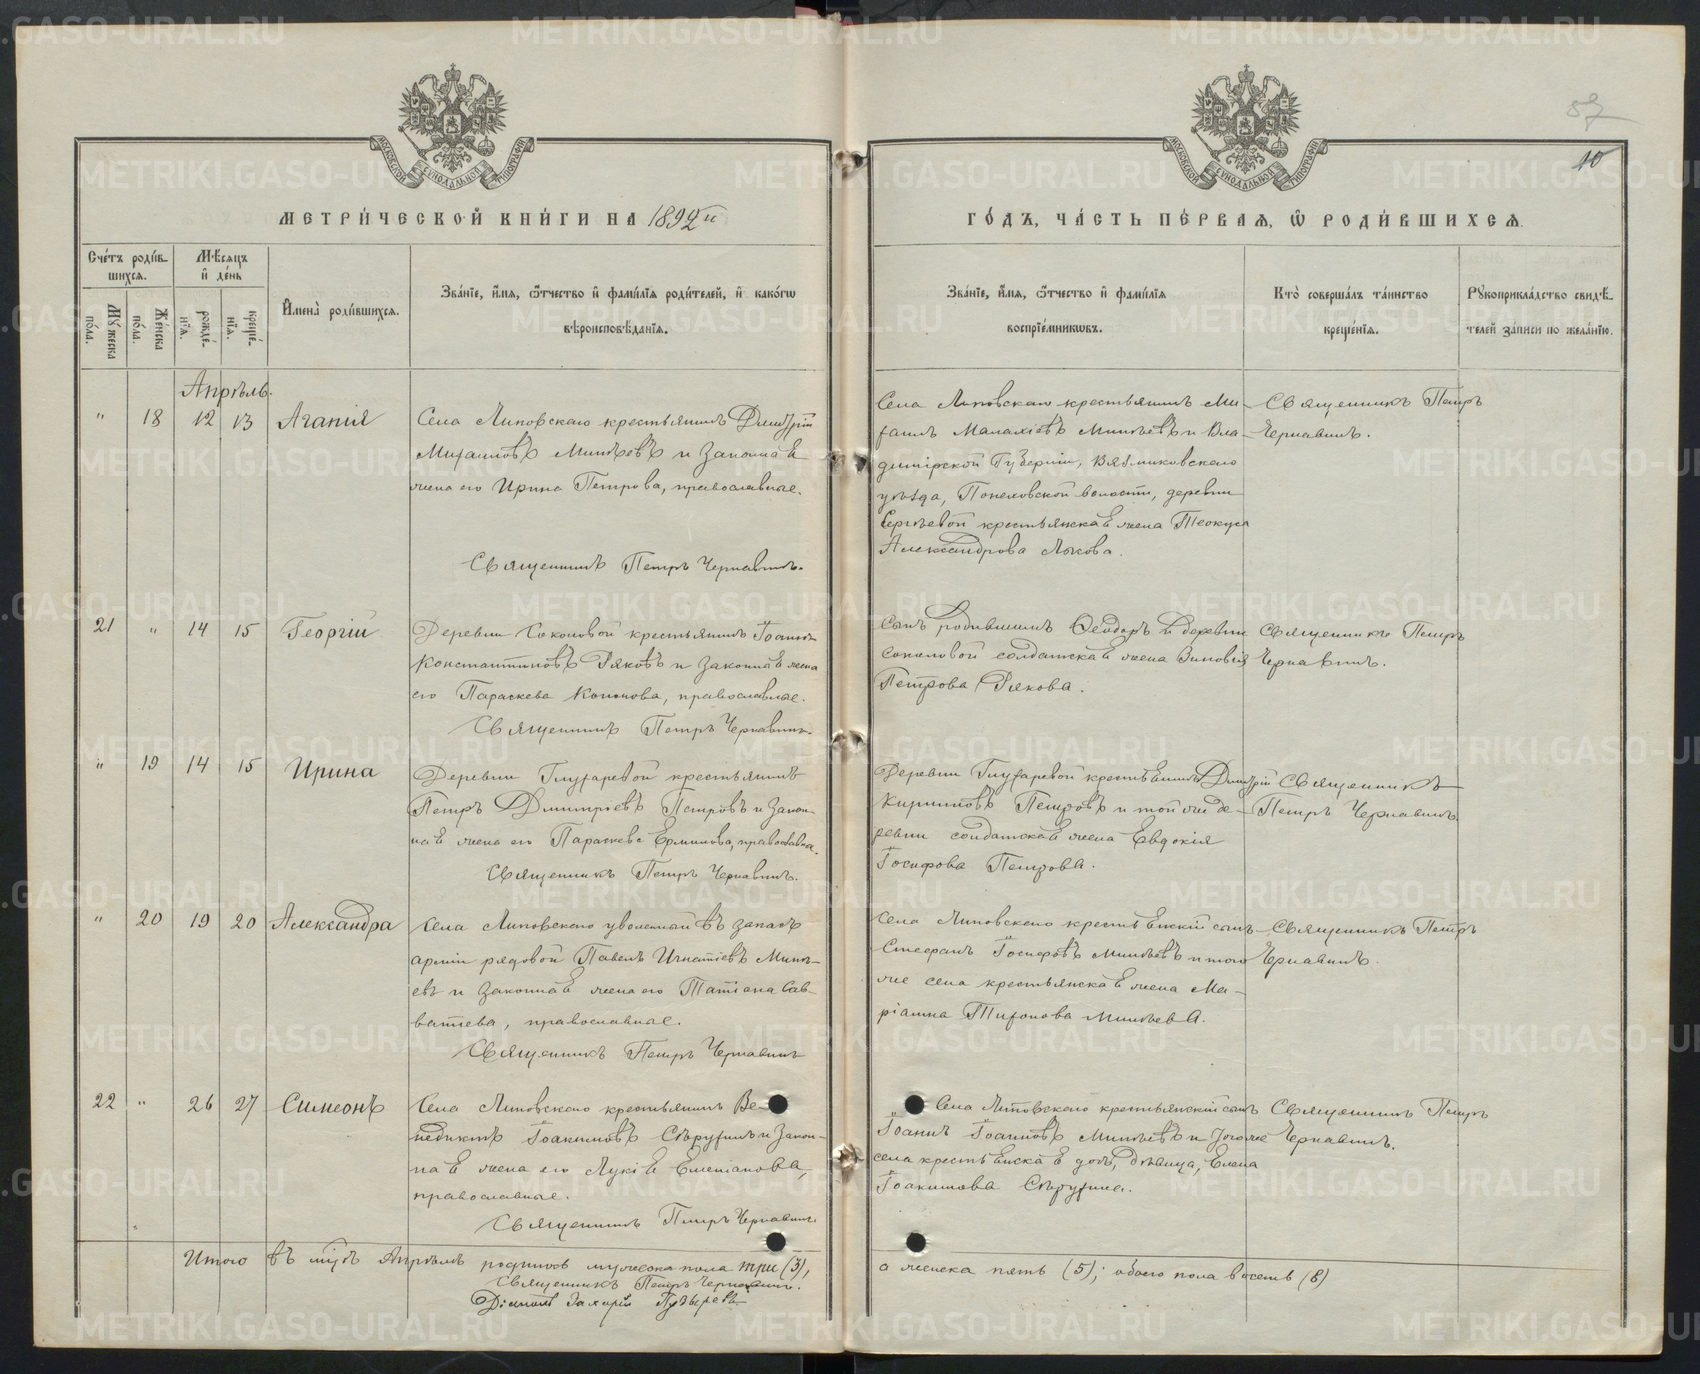 57
10
МОСКОВСКОЙ СѴНОДАЛЬНОЙ ТИПОГРАФІИ
МОСКОВСКОЙ СѴНОДАЛЬНОЙ ТИПОГРАФІИ
МЕТРИ́ЧЕСКОЙ КНИ́ГИ НА 1892й
ГО́ДЪ, ЧА́СТЬ ПЕ́РВАЯ, Ѡ РОДИ́ВШИХСЯ.
Сче́тъ роди́в-
шихся.
Му́жеска
по́ла.
Же́нска
по́ла.
Мѣ́сяцъ
и҆ де́нь
рожде́-
нїя.
креще́-
нїя.
И҆мена̀ роди́вшихся.
Зва́нїе, и҆́мя, ѻ҆́тчество и҆ фами́лїя роди́телей, и҆ како́гѡ
вѣроисповѣ́данїя.
Зва́нїе, и҆́мя, ѻ҆́тчество и҆ фами́лїя
воспрїе́мникѡвъ.
Кто̀ соверша́лъ та́инство
креще́нїя.
Рꙋкоприкла́дство свидѣ́-
телей за́писи по жела́нїю.
Апрѣль.
" 18 12 13 Агапія
Села Липовскаго крестьянинъ Димитрій
Михаиловъ Минѣевъ и законная
жена его Ирина Петрова, православные.
Священникъ Петръ Чернавинъ.
Села Липовскаго крестьянинъ Ми-
хаилъ Малахіевъ Минѣевъ и Вла-
димірской Губерніи, Вязниковскаго
уѣзда, волости, деревни
Сергѣевой крестьянская жена
Александрова Лыкова.
Священникъ Петръ
Чернавинъ.
21 " 14 15 Георгій
Деревни Соколовой крестьянинъ Іоаннъ
Константиновъ Ряковъ и законная жена
его Параскева Кононова, православные.
Священникъ Петръ Чернавинъ.
Сынъ родившихъ Ѳеодоръ и деревни
Соколовой солдатская жена Зиновія
Петрова Рякова.
Священникъ Петръ
Чернавинъ.
" 19 14 15 Ирина
Деревни Глухаревой крестьянинъ
Петръ Димитріевъ Петровъ и закон-
ная жена его Параскева Ермилова, православные.
Священникъ Петръ Чернавинъ.
Деревни Глухаревой крестьянинъ Димитрій
Кирилловъ Петровъ и той же де-
ревни солдатская жена Евдокія
Іосифова Петрова.
Священникъ
Петръ Чернавинъ.
" 20 19 20 Александра
Села Липовскаго уволенный въ запасъ
арміи рядовой Павелъ Игнатіевъ Минѣ-
евъ и законная жена его Татіана Сав-
ватіева, православные.
Священникъ Петръ Чернавинъ
Села Липовскаго крестьянскій сынъ
Стефанъ Іосифовъ Минѣевъ и того
же села крестьянская жена Ма-
ріанна Тихонова Минѣева.
Священникъ Петръ
Чернавинъ.
22 " 26 27 Симеонъ
Села Липовскаго крестьянинъ Ве-
недиктъ Іоакимовъ Сѣрухинъ и закон-
ная жена его Лукія Емеліанова,
православные.
Священникъ Петръ Чернавинъ.
Села Липовскаго крестьянскій сынъ
Іоаннъ Іоанновъ Минѣевъ и того же
села крестьянская дочь, дѣвица, Елена
Іоакимова Сѣрухина.
Священникъ Петръ
Чернавинъ.
Итого въ мѣсяцѣ Апрѣлѣ родилось мужеска пола три (3),
а женска пять (5); обоего пола восемь (8)
Священникъ Петръ Чернавинъ.
Діаконъ Захарій Пузыревъ